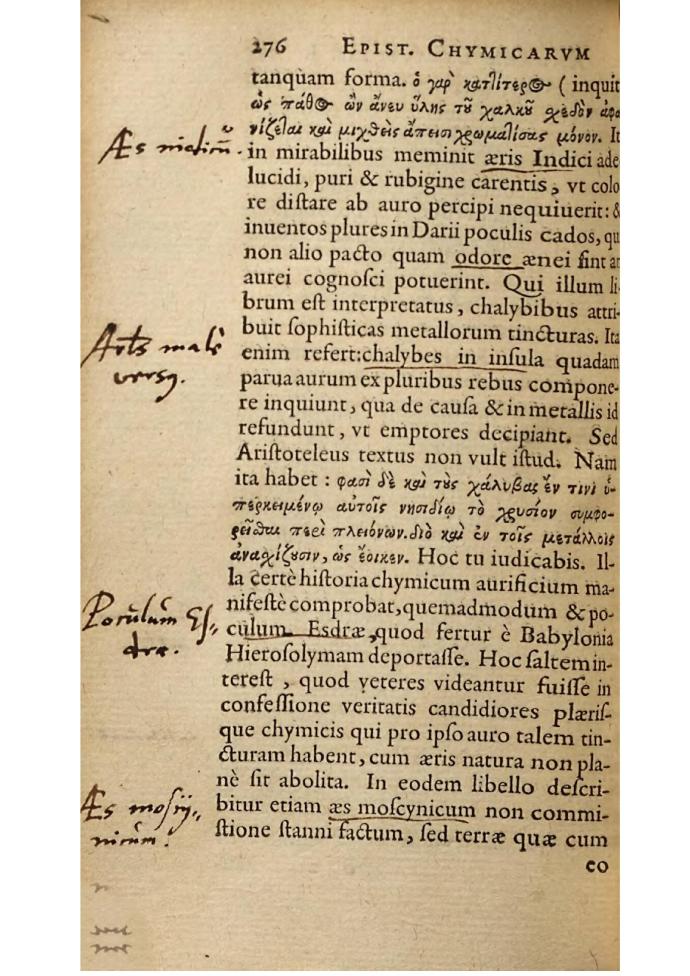 276 EPIST. CHYMICARVM
tanquam forma. ὁ γαρ̀ καττίτερος (inquit
ὡς πάθος ὢν ἄνευ ὕλης τοῦ χαλκοῦ σχεδὸν ἀφα
νίζεται καὶ μιχθεὶς ἄπεισι χρωματίσας μόνον. It
Æs
in mirabilibus meminit æris Indici ade
lucidi, puri & rubigine carentis, vt colo
re diſtare ab auro percipi nequiuerit: &
inuentos plures in Darii poculis cados, qu
non alio pacto quam odore ænei ſint at
aurei cognoſci potuerint. Qui illum li-
brum eſt interpretatus, chalybibus attri-
buit ſophiſticas metallorum tincturas. Ita
male
enim refert: chalybes in inſula quadam
parua aurum ex pluribus rebus compone-
re inquiunt, qua de cauſa & in metallis id
refundunt, vt emptores decipiant. Sed
Ariſtoteleus textus non vult iſtud. Nam
ita habet: φασὶ δὲ καὶ τοὺς χάλυβας ἔν τινι ὑ-
περκειμένῳ αὐτοῖς νησιδίῳ τὸ χρυσίον συμφο-
ρεῖσθαι περὶ πλειόνων. διὸ καὶ ἐν τοῖς μετάλλοις
ἀναχίζουσιν, ὡς ἔοικεν. Hoc tu iudicabis. Il-
la certè hiſtoria chymicum aurificium ma-
Poculum Eſ-
nifeſtè comprobat, quemadmodum & po-
dræ.
culum Esdræ, quod fertur è Babylonia
Hieroſolymam deportaſſe. Hoc ſaltem in-
tereſt, quod veteres videantur fuiſſe in
confeſſione veritatis candidiores plæriſ-
que chymicis qui pro ipſo auro talem tin-
cturam habent, cum æris natura non pla-
nè ſit abolita. In eodem libello deſcri-
Æs moſcy-
bitur etiam æs moſcynicum non commi-
nicum.
ſtione ſtanni factum, ſed terræ quæ cum
co